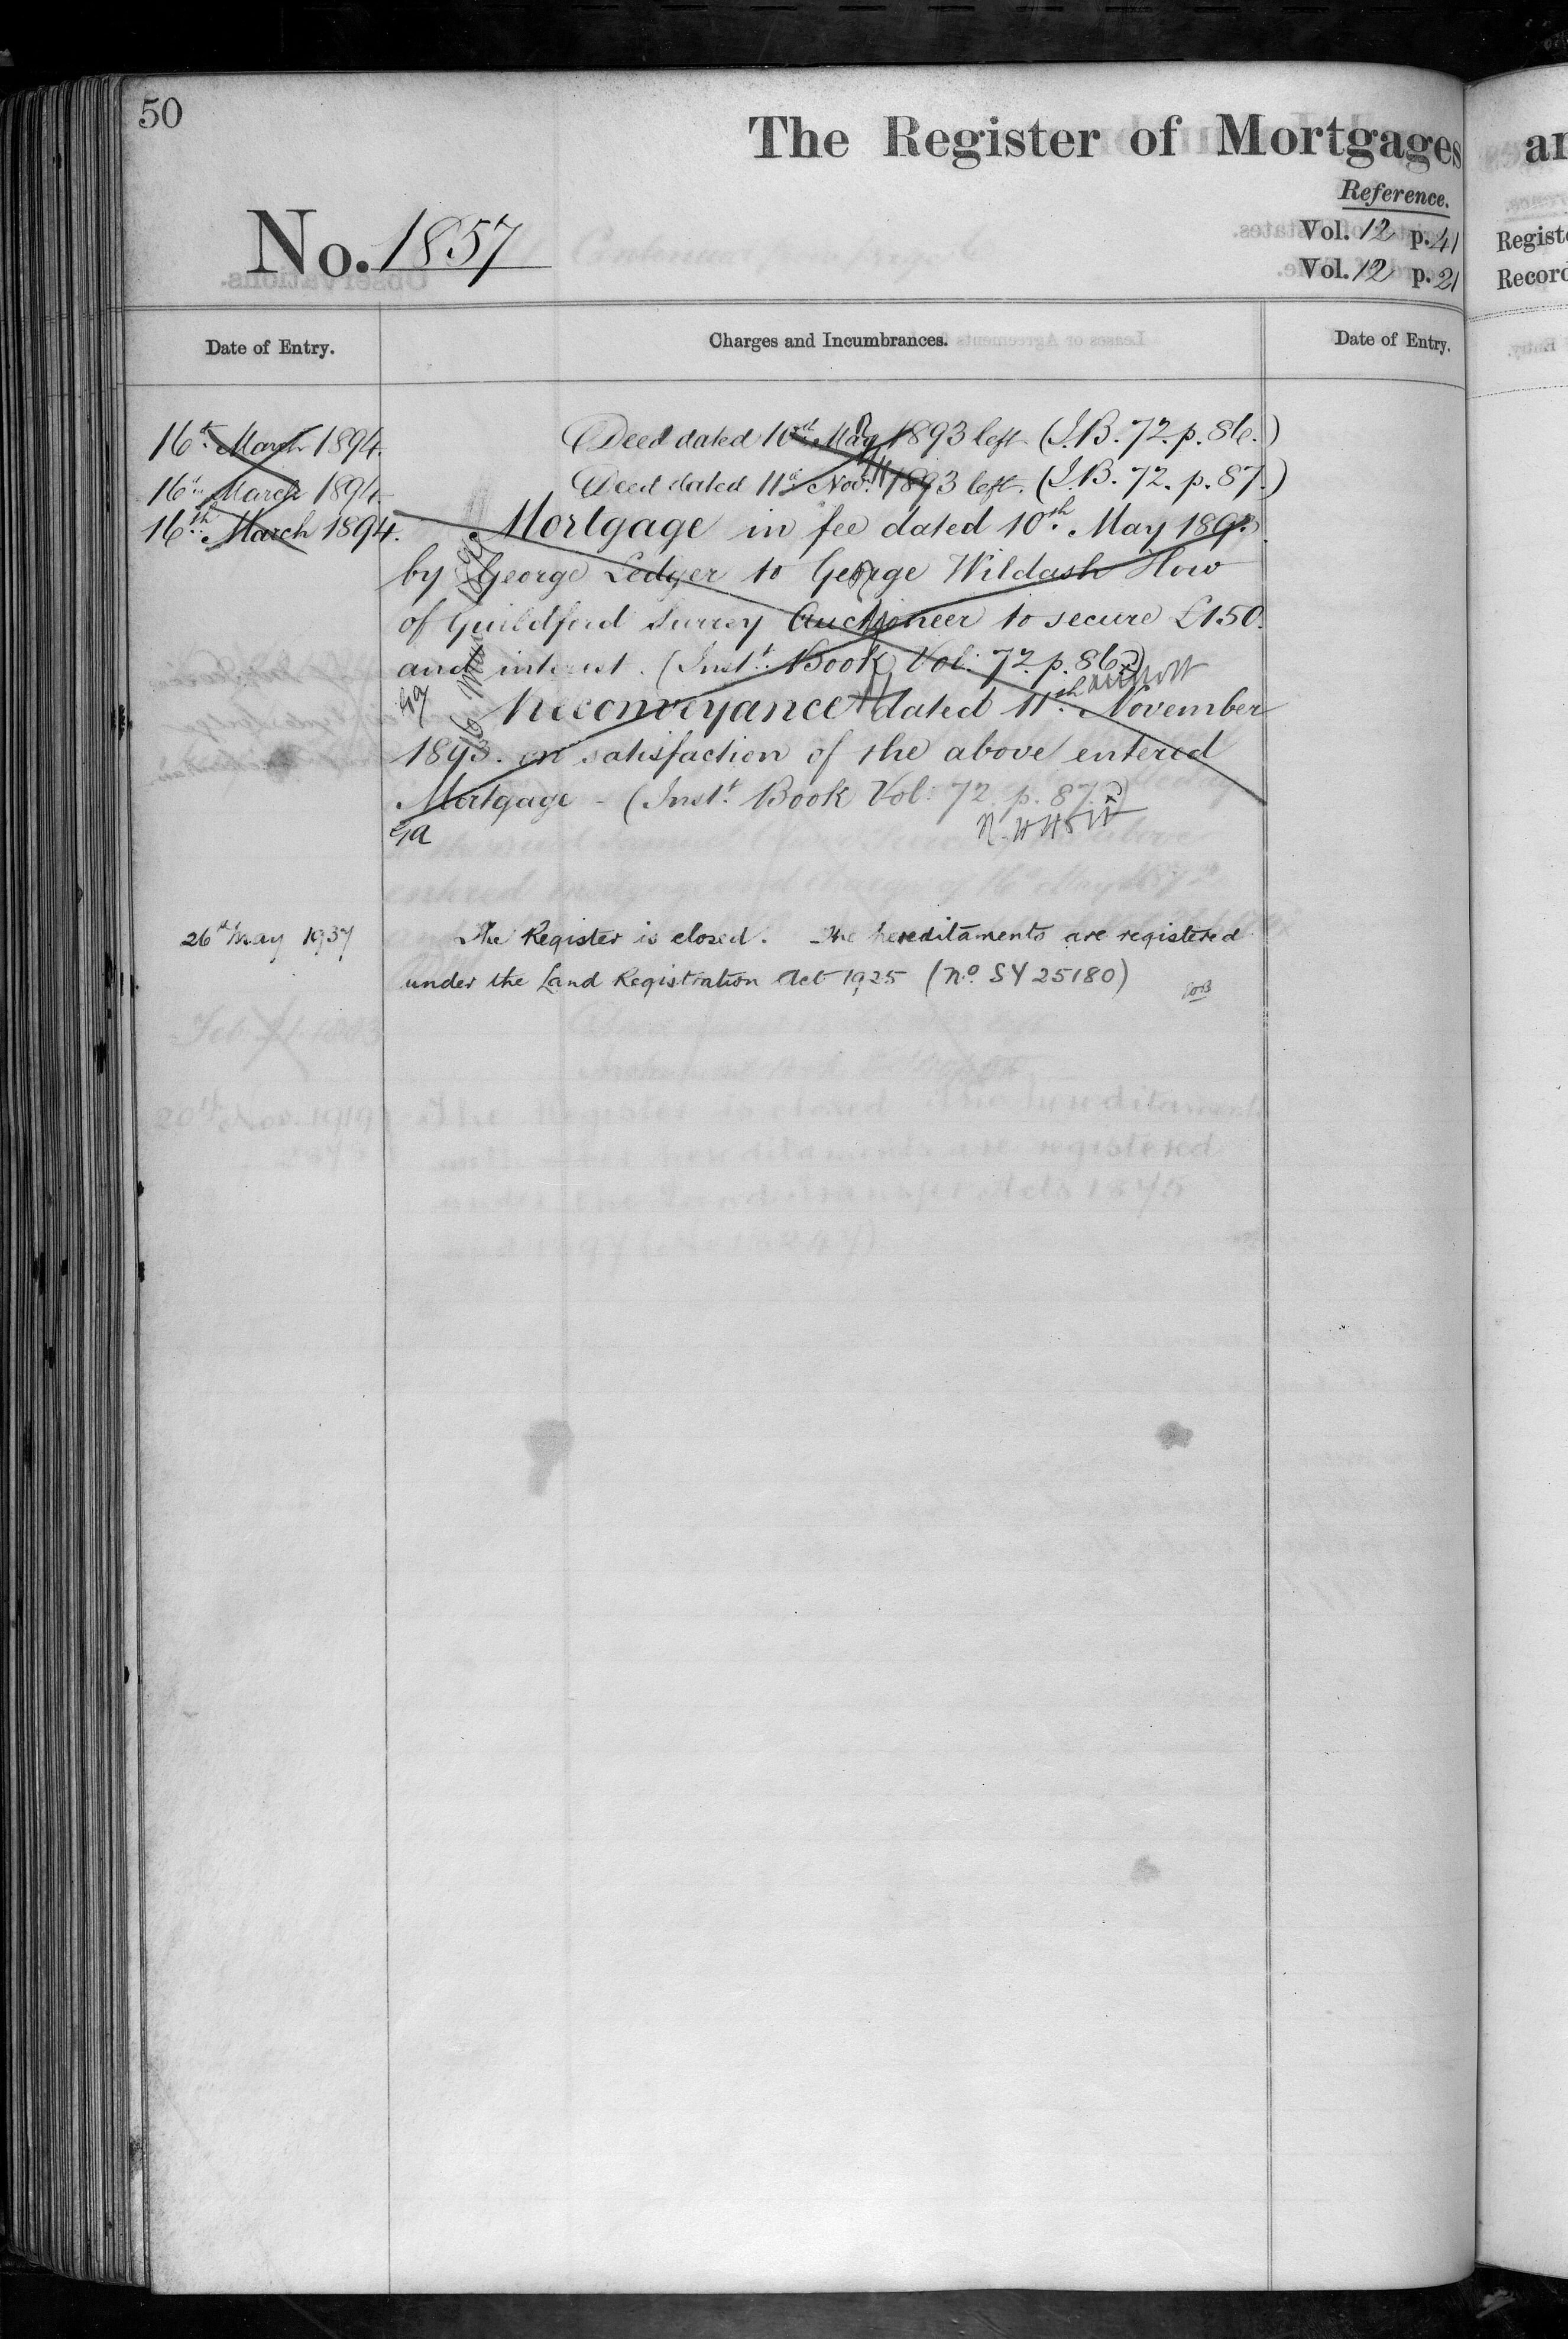 50
The Register of Mortgages
Reference.
No. 1857
Vol. 12 p. 41
Vol. 12 p. 21
Date of Entry.
Charges and Incumbrances.
Date of Entry.
16th March 1894. Deed dated 10th May 1893 left (I.B. 72. p. 86.)
16th March 1894 Deed dated 11th Nov. 1893 left. (I.B. 72. p. 87.)
16th March 1894. Mortgage in fee dated 10th May 1893
by George Ledger to George Wildash How
of Guildford Surrey Auctioneer to secure £150.
and interest. (Inst. Book Vol: 72. p. 86.)
Reconveyance dated 11th November
1893. in satisfaction of the above entered
Mortgage - (Inst. Book Vol: 72. p. 87.)
26th May 1937 The Register is closed. The hereditaments are registered
under the Land Registration Act 1925 (No. SY 25180)
an
Registe
Record